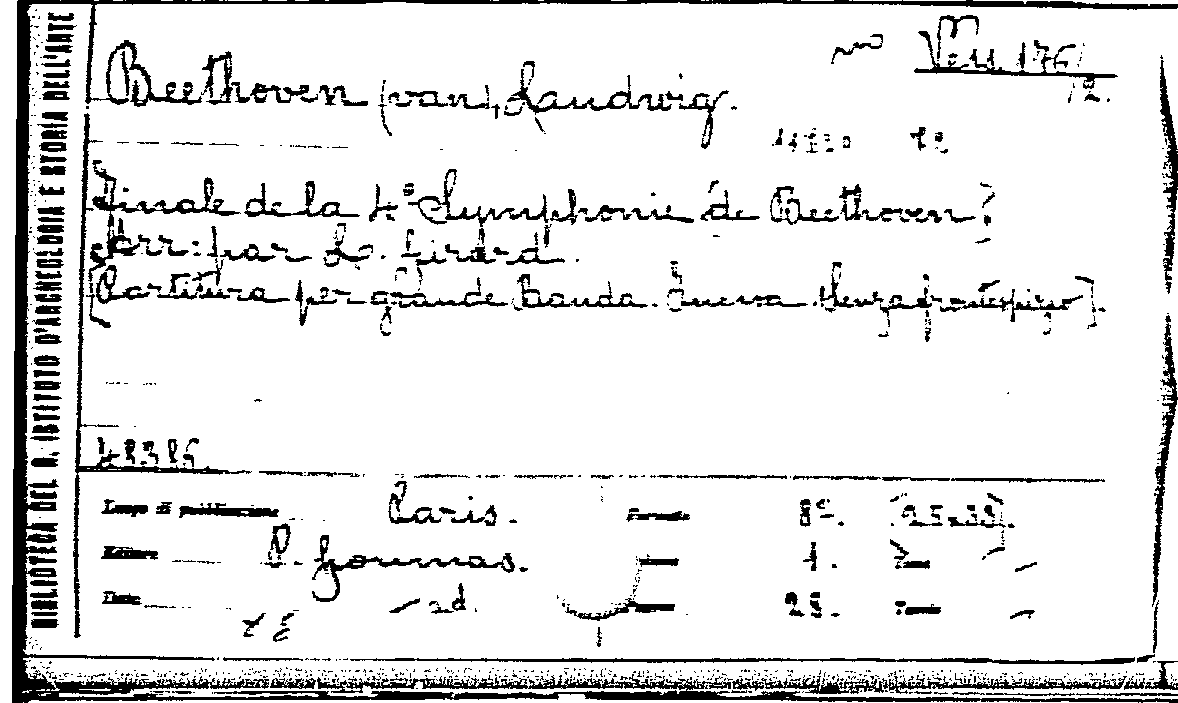 BIBLIOTECA DEL R. ISTITUTO D'ARCHEOLOGIA E STORIA DELL'ARTE
Beethoven (van), Laudwig.
Finale de la 4ª Symphonie de Beethoven.
Arr: par L. Girard.
[Partitura per grande Banda. Senza frontespizio].
48386
Luogo di pubblicazione Paris. Formato 8º. [25x33].
Editore P. Goumas. 1.
Data s.d. 28.